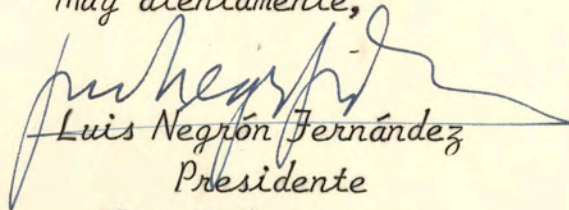 Muy atentamente,
Luis Negrón Fernández
Presidente